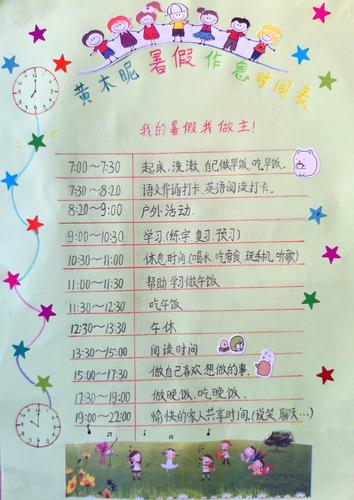 黄木昵暑假作息时间表
我的暑假我做主!
7:00～7:30 起床.洗漱 自己做早饭.吃早饭.
7:30～8:20 语文背诵打卡.英语阅读打卡.
8:20～9:00 户外活动.
9:00～10:30 学习(练字.复习.预习)
10:30～11:00 休息时间(喝水.吃零食.玩手机.听歌)
11:00～11:30 帮助学习做午饭
11:30～12:30 吃午饭
12:30～13:30 午休
13:30～15:00 阅读时间
15:00～17:30 做自己喜欢.想做的事.
17:30～19:00 做晚饭.吃晚饭.
19:00～22:00 愉快的家人共享时间.(说笑.聊天…)